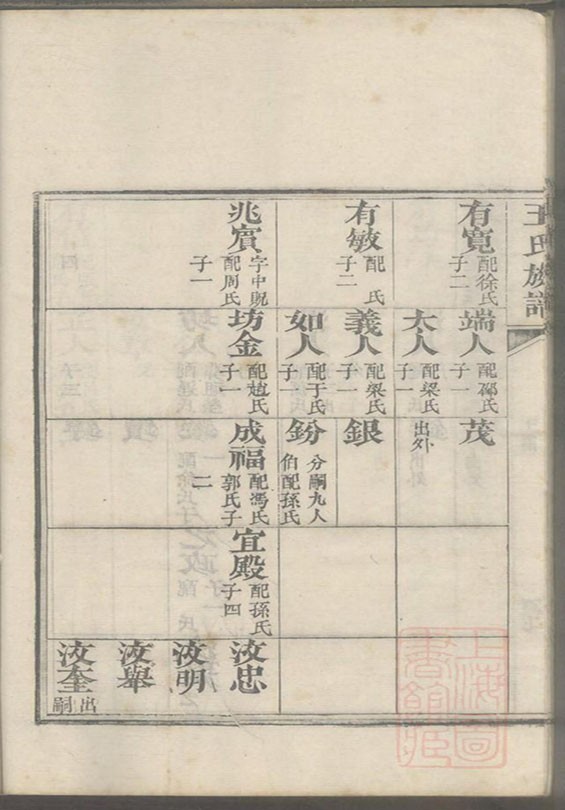 王氏族譜
有寬
配徐氏
子二
有敏
配　氏
子二
兆賓
字中貺
配周氏
子一
端人
配邵氏
子一
太人
配梁氏
子一
義人
配梁氏
子一
如人
配于氏
子一
坊金
配趙氏
子一
茂
出外
銀
鈖
分嗣九人
伯配孫氏
成福
配馮氏
郭氏子
二
宜殿
配孫氏
子四
汝忠
汝明
汝舉
汝奎
出嗣
上海圖
書館藏